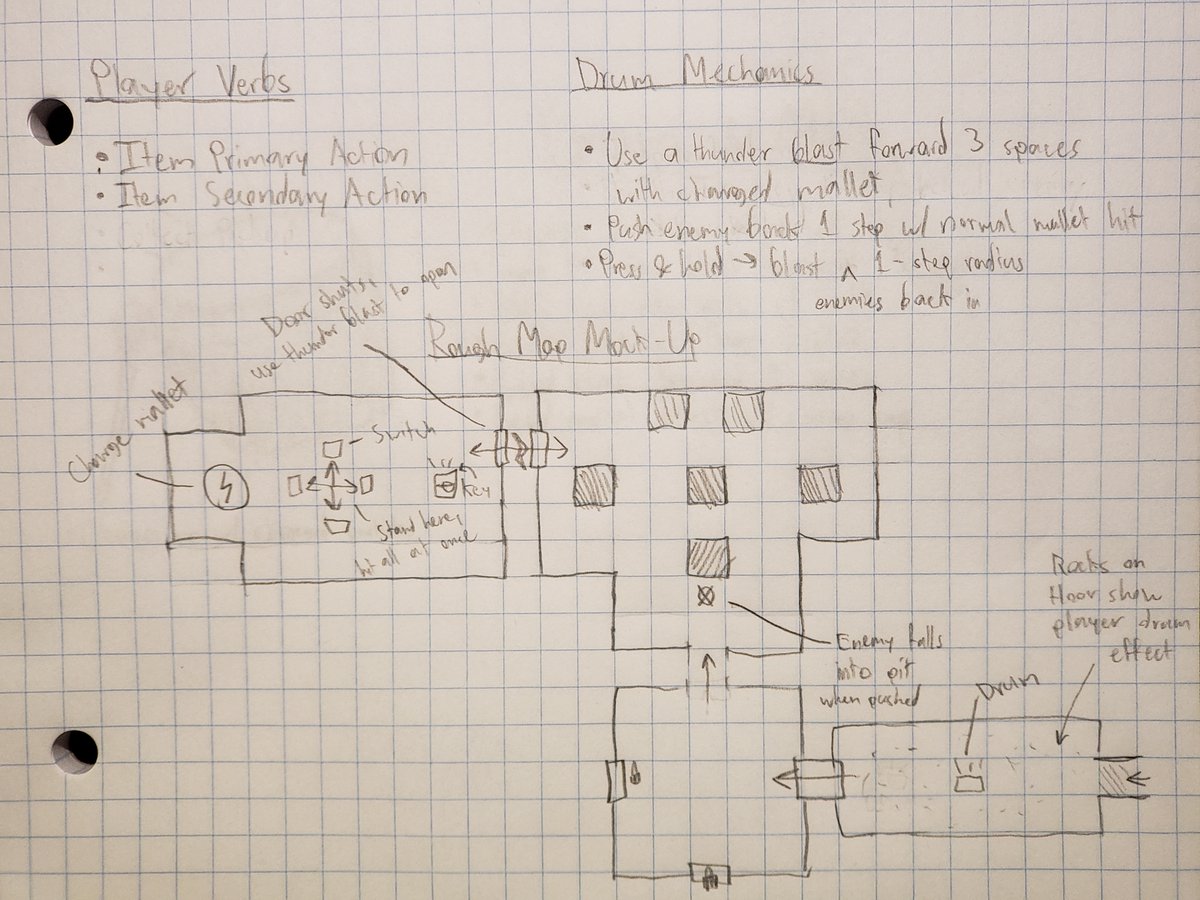 Player Verbs
• Item Primary Action
• Item Secondary Action
Drum Mechanics
• Use a thunder blast forward 3 spaces
with charged mallet.
• Push enemy back 1 step w/ normal mallet hit
• Press & hold → blast ^ 1-step radius
enemies back in
Rough Map Mock-Up
Door shuts,
use thunder blast to open
Charge mallet
Switch
Key
Stand here,
hit all at once
Enemy falls
into pit
when pushed
Drum
Rocks on
floor show
player drum
effect